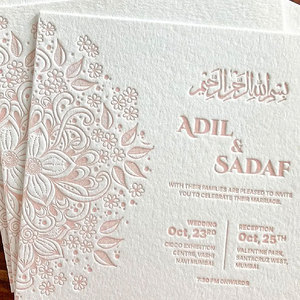 بسم الله الرحمن الرحيم
ADIL
&
SADAF
WITH THEIR FAMILIES ARE PLEASED TO INVITE
YOU TO CELEBRATE THEIR MARRIAGE.
WEDDING
Oct, 23RD
CIDCO EXHIBITION
CENTRE, VASHI,
NAVI MUMBAI
RECEPTION
Oct, 25TH
VALENTINE PARK,
SANTACRUZ WEST,
MUMBAI
7:30 PM ONWARDS